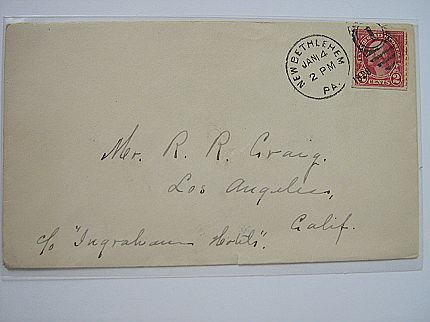 NEW BETHLEHEM
JAN 4
2 PM
PA.
2 CENTS 2
Mr. R. R. Craig.
Los Angeles,
Calif.
c/o "Ingraham Hotel".